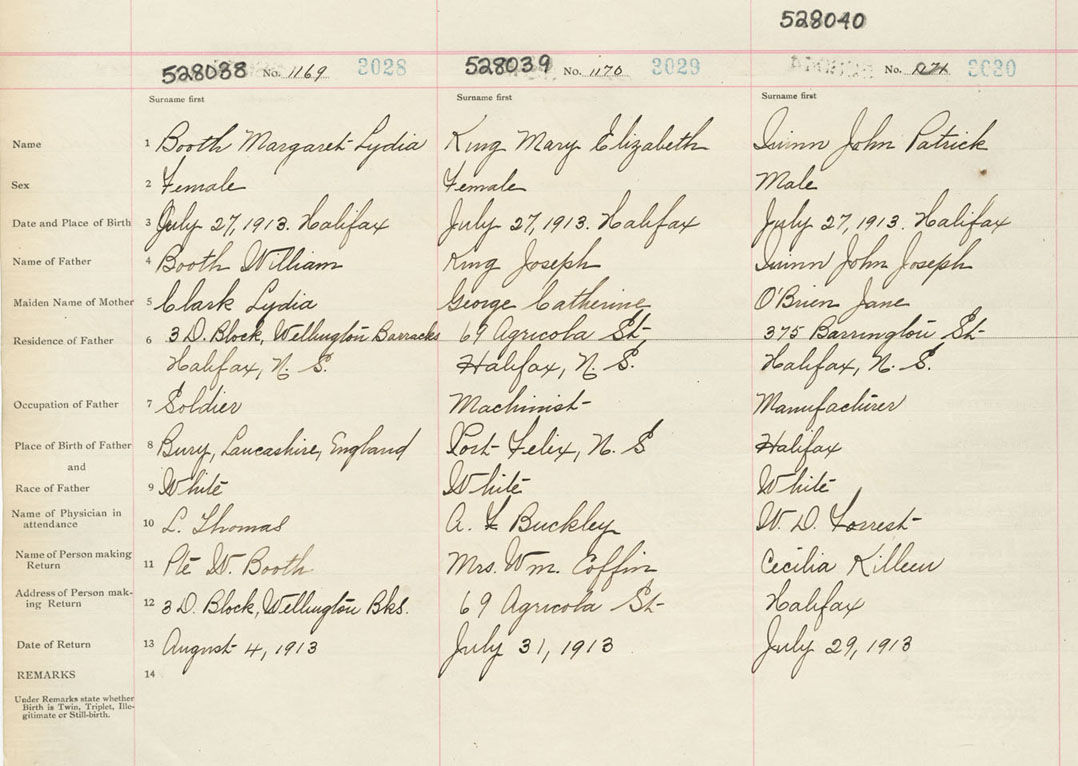 528040
528038 No. 1169 3028 528039 No. 1170 3029 No. 3030
Surname first Surname first Surname first
Name 1 Booth Margaret Lydia King Mary Elizabeth Quinn John Patrick
Sex 2 Female Female Male
Date and Place of Birth 3 July 27, 1913. Halifax July 27, 1913. Halifax July 27, 1913. Halifax
Name of Father 4 Booth William King Joseph Quinn John Joseph
Maiden Name of Mother 5 Clark Lydia George Catherine O'Brien Jane
Residence of Father 6 3 D. Block, Wellington Barracks 69 Agricola St 375 Barrington St
Halifax, N. S. Halifax, N. S. Halifax, N. S.
Occupation of Father 7 Soldier Machinist Manufacturer
Place of Birth of Father 8 Bury, Lancashire, England Port Felix, N. S Halifax
and
Race of Father 9 White White White
Name of Physician in
attendance 10 L. Thomas A. F Buckley W. D. Forrest
Name of Person making
Return 11 Pte W. Booth Mrs. Wm. Coffin Cecilia Killeen
Address of Person mak-
ing Return 12 3 D. Block, Wellington Bks. 69 Agricola St Halifax
Date of Return 13 August 4, 1913 July 31, 1913 July 29, 1913
REMARKS 14
Under Remarks state whether
Birth is Twin, Triplet, Ille-
gitimate or Still-birth.